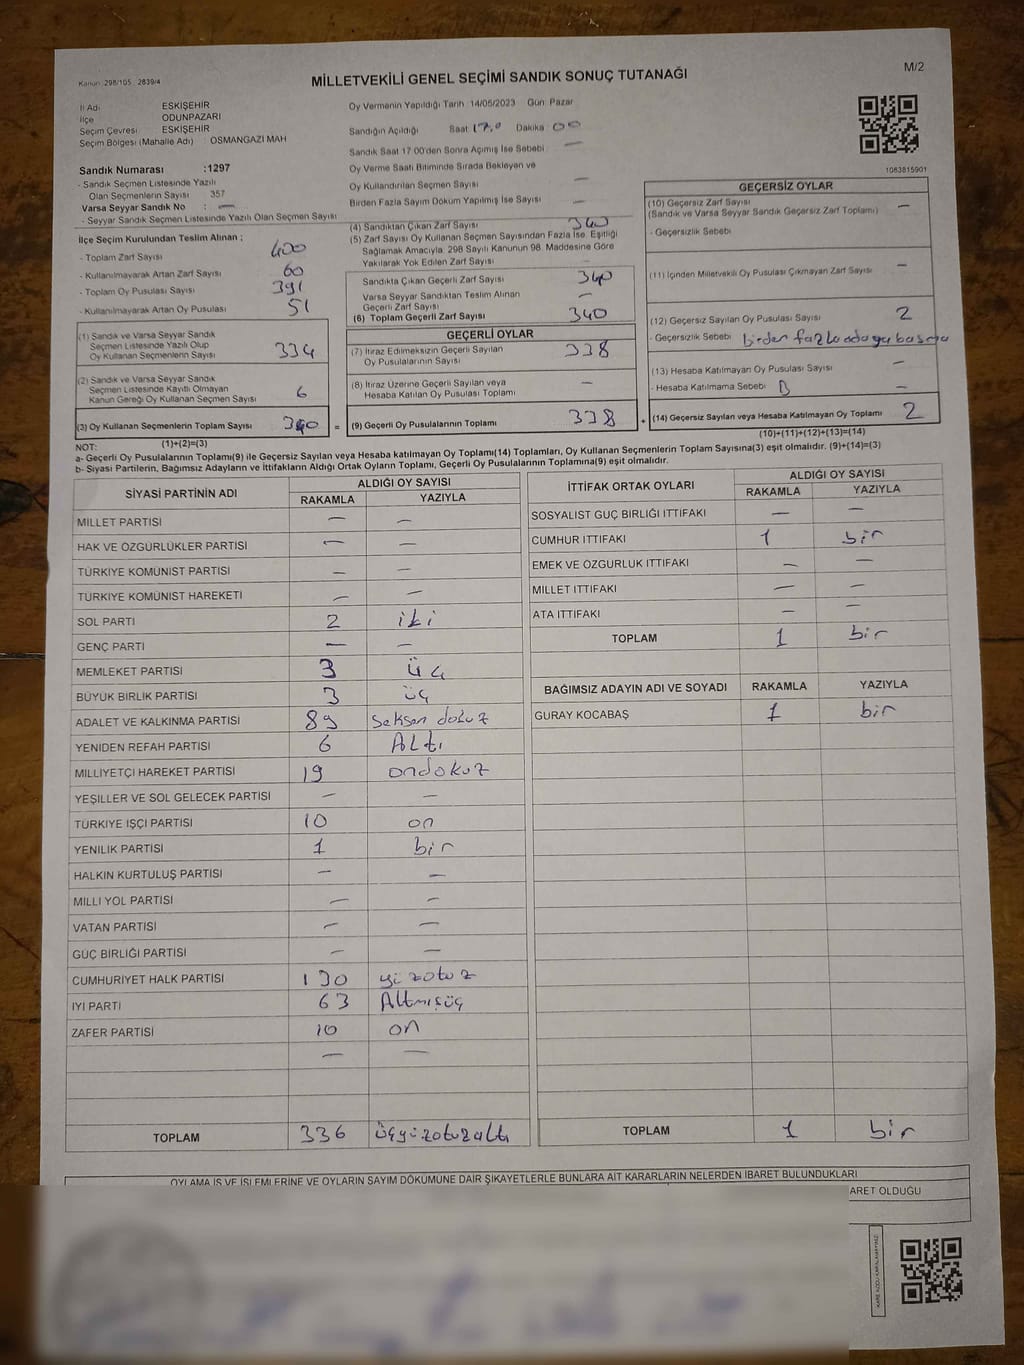 Kanun: 298/105, 2839/4
MİLLETVEKİLİ GENEL SEÇİMİ SANDIK SONUÇ TUTANAĞI
M/2
İl Adı ESKİŞEHİR
İlçe ODUNPAZARI
Seçim Çevresi ESKİŞEHİR
Seçim Bölgesi (Mahalle Adı) : OSMANGAZİ MAH
Sandık Numarası :1297
- Sandık Seçmen Listesinde Yazılı
Olan Seçmenlerin Sayısı 357
Varsa Seyyar Sandık No : —
- Seyyar Sandık Seçmen Listesinde Yazılı Olan Seçmen Sayısı
İlçe Seçim Kurulundan Teslim Alınan ;
- Toplam Zarf Sayısı 400
- Kullanılmayarak Artan Zarf Sayısı 60
- Toplam Oy Pusulası Sayısı 391
- Kullanılmayarak Artan Oy Pusulası 51
(1) Sandık ve Varsa Seyyar Sandık
Seçmen Listesinde Yazılı Olup
Oy Kullanan Seçmenlerin Sayısı 334
(2) Sandık ve Varsa Seyyar Sandık
Seçmen Listesinde Kayıtlı Olmayan
Kanun Gereği Oy Kullanan Seçmen Sayısı 6
(3) Oy Kullanan Seçmenlerin Toplam Sayısı 340 =
(1)+(2)=(3)
Oy Vermenin Yapıldığı Tarih : 14/05/2023 Gün: Pazar
Sandığın Açıldığı Saat 17.0 Dakika 00
Sandık Saat 17:00'den Sonra Açımış İse Sebebi : —
Oy Verme Saati Bitiminde Sırada Bekleyen ve
Oy Kullandırılan Seçmen Sayısı —
Birden Fazla Sayım Döküm Yapılmış İse Sayısı —
(4) Sandıktan Çıkan Zarf Sayısı 340
(5) Zarf Sayısı Oy Kullanan Seçmen Sayısından Fazla İse, Eşitliği
Sağlamak Amacıyla, 298 Sayılı Kanunun 98. Maddesine Göre
Yakılarak Yok Edilen Zarf Sayısı
Sandıkta Çıkan Geçerli Zarf Sayısı 340
Varsa Seyyar Sandıktan Teslim Alınan
Geçerli Zarf Sayısı —
(6) Toplam Geçerli Zarf Sayısı 340
GEÇERLİ OYLAR
(7) İtiraz Edilmeksizin Geçerli Sayılan
Oy Pusulalarının Sayısı 338
(8) İtiraz Üzerine Geçerli Sayılan veya
Hesaba Katılan Oy Pusulası Toplamı —
(9) Geçerli Oy Pusulalarının Toplamı 338 +
1063815901
GEÇERSİZ OYLAR
(10) Geçersiz Zarf Sayısı
(Sandık ve Varsa Seyyar Sandık Geçersiz Zarf Toplamı) —
- Geçersizlik Sebebi
(11) İçinden Milletvekili Oy Pusulası Çıkmayan Zarf Sayısı —
(12) Geçersiz Sayılan Oy Pusulası Sayısı 2
- Geçersizlik Sebebi birden fazla adaya basma
(13) Hesaba Katılmayan Oy Pusulası Sayısı —
- Hesaba Katılmama Sebebi —
(14) Geçersiz Sayılan veya Hesaba Katılmayan Oy Toplamı 2
(10)+(11)+(12)+(13)=(14)
NOT:
a- Geçerli Oy Pusulalarının Toplamı(9) ile Geçersiz Sayılan veya Hesaba katılmayan Oy Toplamı(14) Toplamları, Oy Kullanan Seçmenlerin Toplam Sayısına(3) eşit olmalıdır. (9)+(14)=(3)
b- Siyasi Partilerin, Bağımsız Adayların ve İttifakların Aldığı Ortak Oyların Toplamı, Geçerli Oy Pusulalarının Toplamına(9) eşit olmalıdır.
SİYASİ PARTİNİN ADI ALDIĞI OY SAYISI
RAKAMLA YAZIYLA
MİLLET PARTİSİ — —
HAK VE ÖZGÜRLÜKLER PARTİSİ — —
TÜRKİYE KOMÜNİST PARTİSİ — —
TÜRKİYE KOMÜNİST HAREKETİ — —
SOL PARTİ 2 iki
GENÇ PARTİ — —
MEMLEKET PARTİSİ 3 üç
BÜYÜK BİRLİK PARTİSİ 3 üç
ADALET VE KALKINMA PARTİSİ 89 seksen dokuz
YENİDEN REFAH PARTİSİ 6 Altı
MİLLİYETÇİ HAREKET PARTİSİ 19 ondokuz
YEŞİLLER VE SOL GELECEK PARTİSİ — —
TÜRKİYE İŞÇİ PARTİSİ 10 on
YENİLİK PARTİSİ 1 bir
HALKIN KURTULUŞ PARTİSİ — —
MİLLİ YOL PARTİSİ — —
VATAN PARTİSİ — —
GÜÇ BİRLİĞİ PARTİSİ — —
CUMHURİYET HALK PARTİSİ 130 yüzotuz
İYİ PARTİ 63 Altmışüç
ZAFER PARTİSİ 10 on
— —
TOPLAM 336 üçyüzotuzaltı
İTTİFAK ORTAK OYLARI ALDIĞI OY SAYISI
RAKAMLA YAZIYLA
SOSYALİST GÜÇ BİRLİĞİ İTTİFAKI — —
CUMHUR İTTİFAKI 1 bir
EMEK VE ÖZGÜRLÜK İTTİFAKI — —
MİLLET İTTİFAKI — —
ATA İTTİFAKI — —
TOPLAM 1 bir
BAĞIMSIZ ADAYIN ADI VE SOYADI RAKAMLA YAZIYLA
GÜRAY KOCABAŞ 1 bir
TOPLAM 1 bir
OYLAMA İŞ VE İŞLEMLERİNE VE OYLARIN SAYIM DÖKÜMÜNE DAİR ŞİKAYETLERLE BUNLARA AİT KARARLARIN NELERDEN İBARET BULUNDUKLARI
ARET OLDUĞU